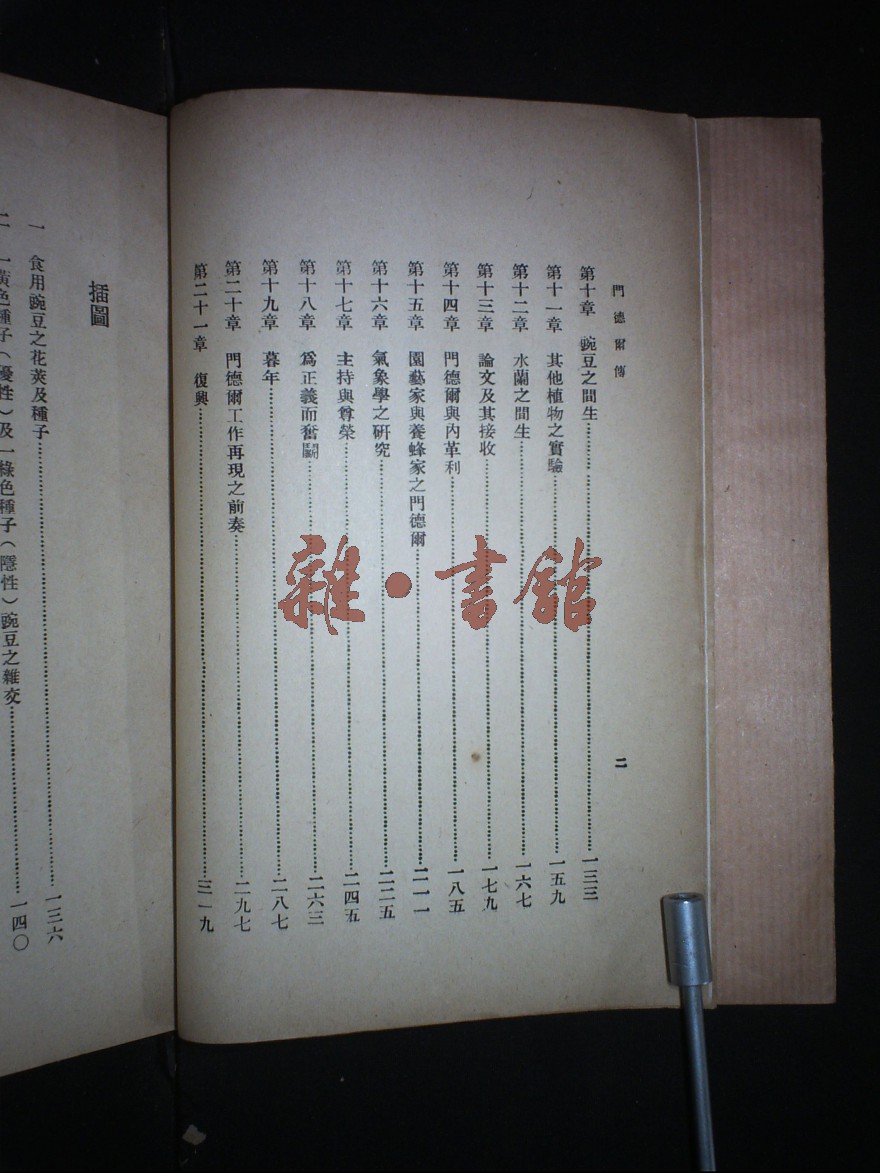 門德爾傳
二
第十章　豌豆之間生……一三三
第十一章　其他植物之實驗……一五九
第十二章　水蘭之間生……一六七
第十三章　論文及其接收……一七九
第十四章　門德爾與內革利……一八五
第十五章　園藝家與養蜂家之門德爾……二一一
第十六章　氣象學之研究……二二五
第十七章　主持與尊榮……二四五
第十八章　爲正義而奮鬭……二六三
第十九章　暮年……二八七
第二十章　門德爾工作再現之前奏……二九七
第二十一章　復興……三一九
插圖
一　食用豌豆之花莢及種子……一三六
二　一黃色種子(優性)及一綠色種子(隱性)豌豆之雜交……一四〇
雜·書館